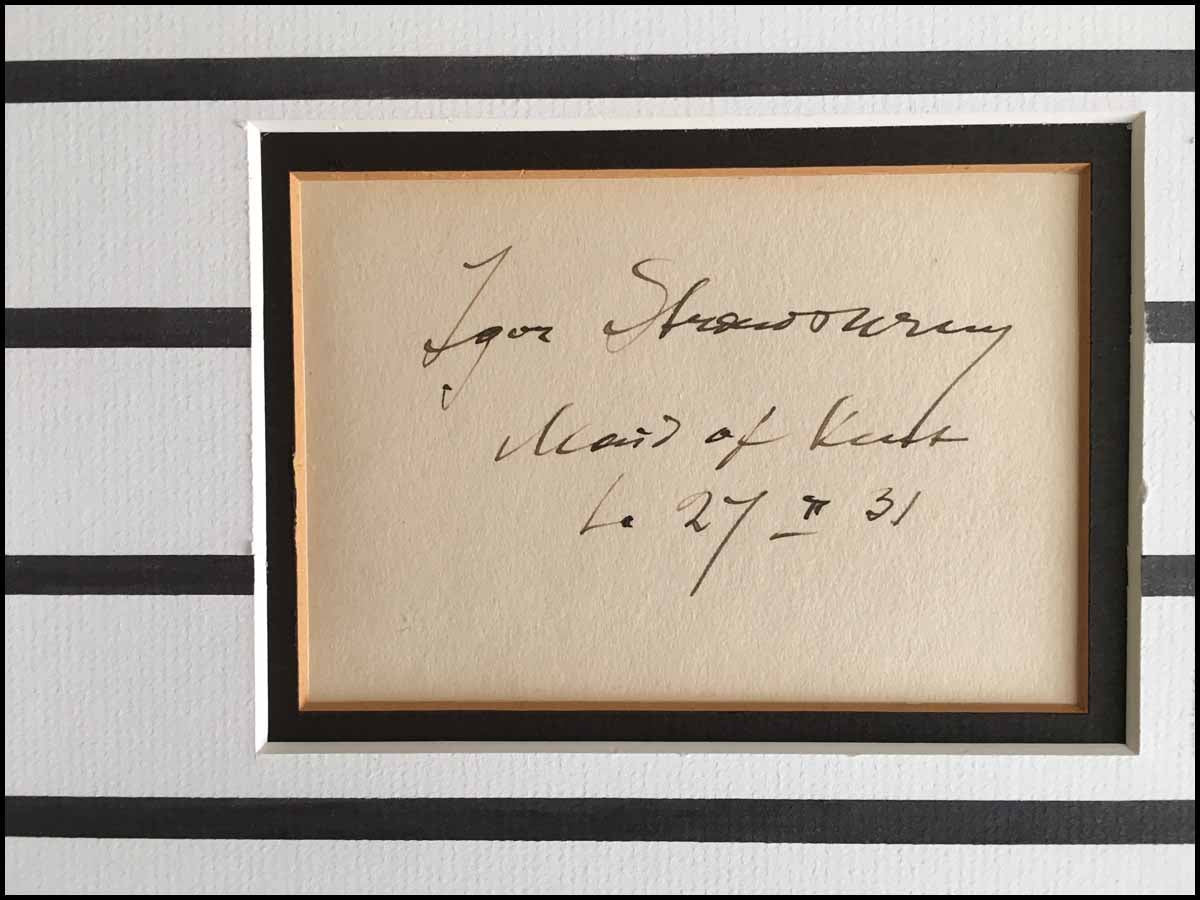 Igor Strawinsky
Maid of Kent
Le 27 II 31